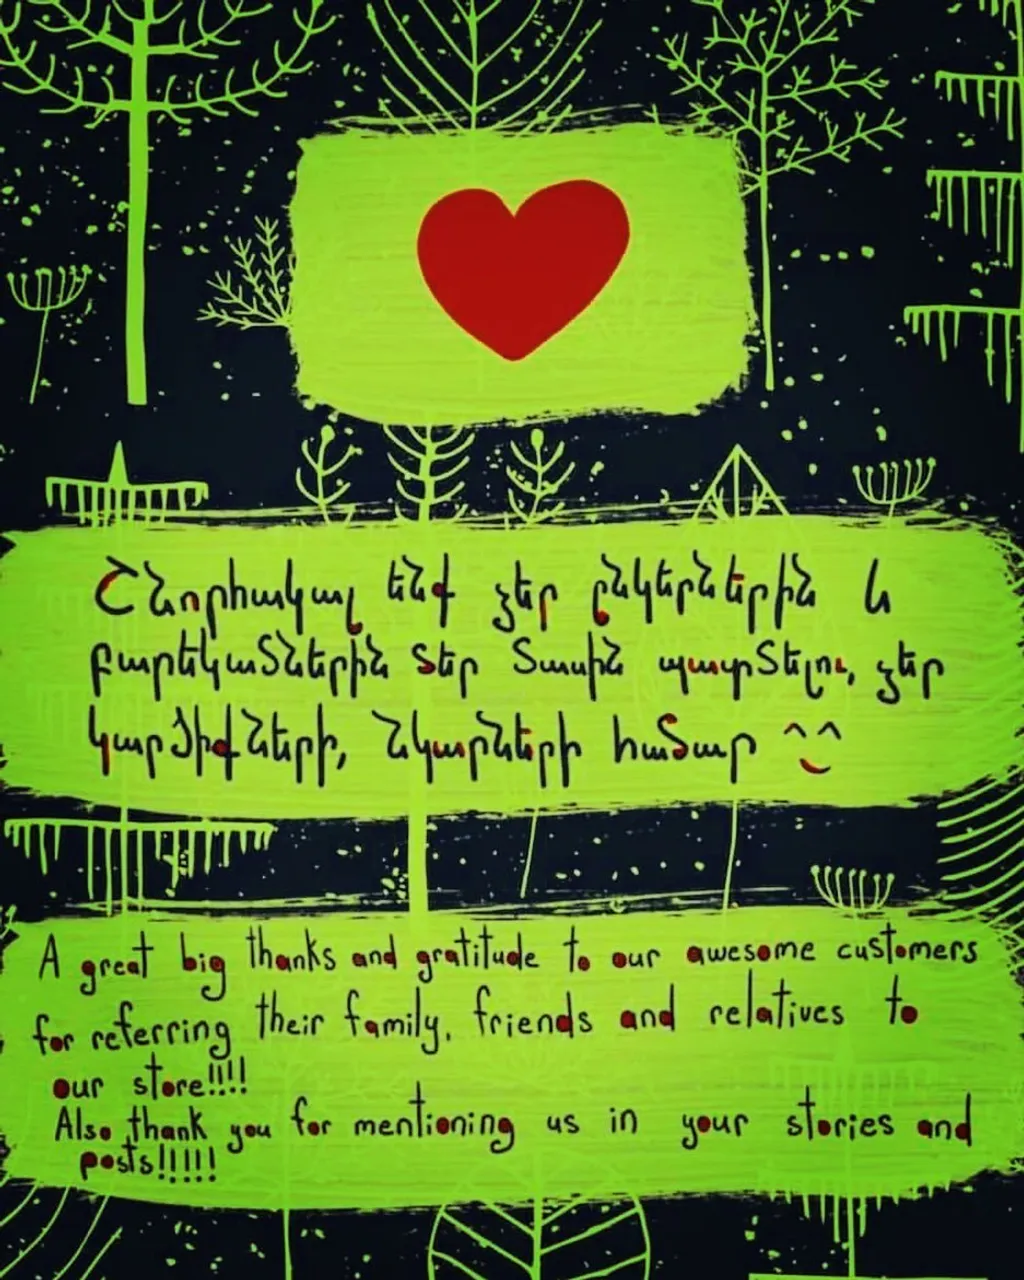 Շնորհակալ ենք ձեր ընկերներին և
բարեկամներին մեր մասին պատմելու, ձեր
կարծիքների, նկարների համար ^^
A great big thanks and gratitude to our awesome customers
for referring their family, friends and relatives to
our store!!!!
Also thank you for mentioning us in your stories and
posts!!!!!